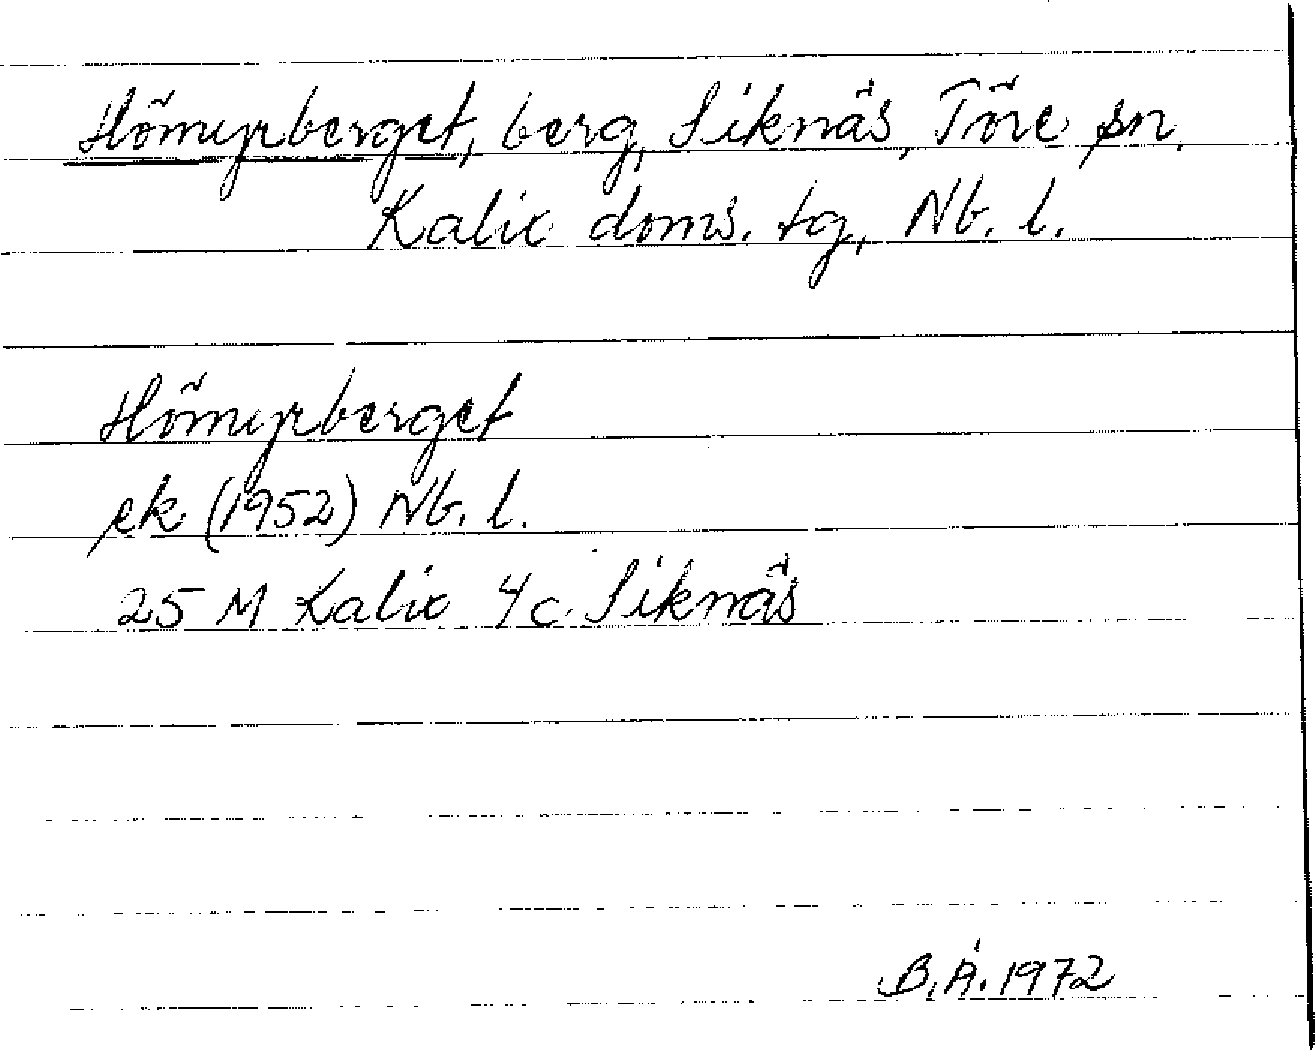 Hömyrberget, berg, Siknäs, Töre sn.
Kalix doms. tg, Nb. l.
Hömyrberget
ek (1952) Nb. l.
25 M Kalix 4c Siknäs
B.Å. 1972